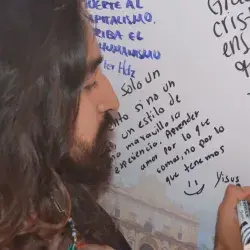 UERTE AL
CAPITALISMO.
RIBA EL
HUMANISMO
solo un
sino un
un estilo de
maravillosa
experiencia. Aprender
amar por lo que
somos, no por lo
que tenemos
Yisus
Gra
cris
ens
q